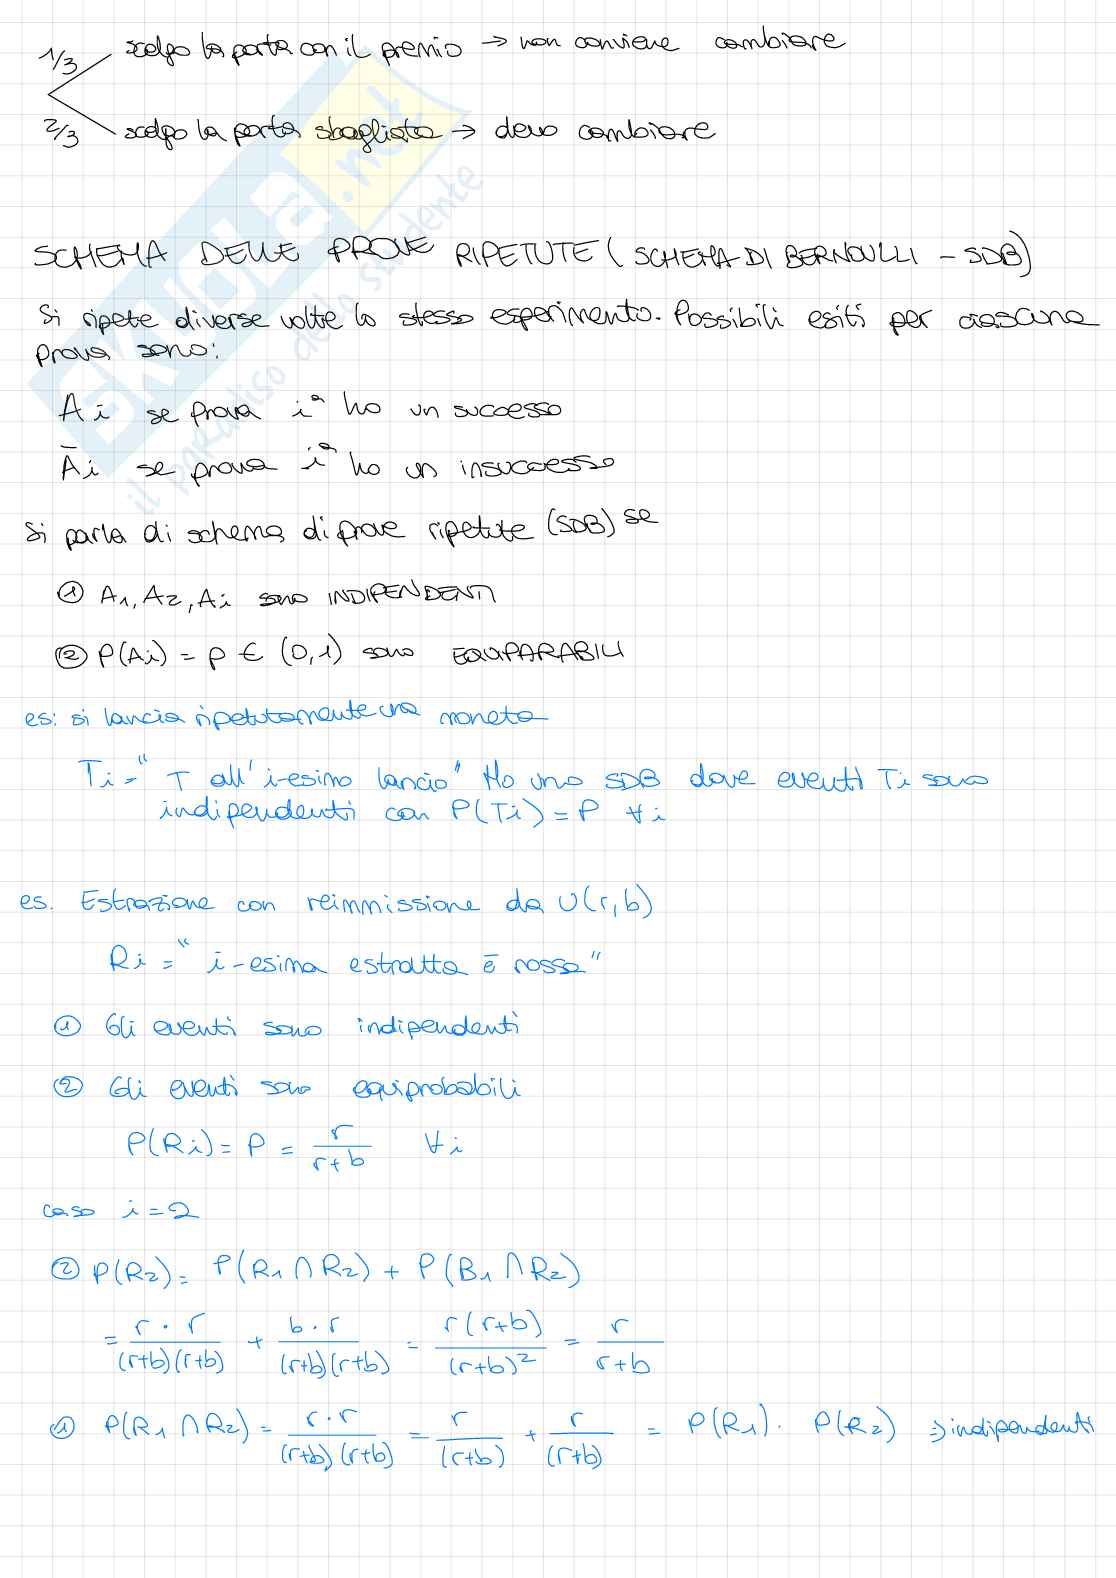 1/3 scelgo la porta con il premio → non conviene cambiare
2/3 scelgo la porta sbagliata → devo cambiare
SKUOLA.net
il paradiso dello studente
SCHEMA DELLE PROVE RIPETUTE (SCHEMA DI BERNOULLI - SDB)
Si ripete diverse volte lo stesso esperimento. Possibili esiti per ciascuna
prova sono:
Ai se prova iª ho un successo
Āi se prova iª ho un insuccesso
Si parla di schema di prove ripetute (SDB) se
① A1, A2, Ai sono INDIPENDENTI
② P(Ai) = p ∈ (0,1) sono EQUIPARABILI
es: si lancia ripetutamente una moneta
Ti = "T all'i-esimo lancio" Ho uno SDB dove eventi Ti sono
indipendenti con P(Ti) = P ∀i
es. Estrazione con reimmissione da U(r,b)
Ri = "i-esima estratta è rossa"
① Gli eventi sono indipendenti
② Gli eventi sono equiprobabili
P(Ri) = P = r/(r+b) ∀i
caso i=2
② P(R2) = P(R1 ∩ R2) + P(B1 ∩ R2)
= r · r/((r+b)(r+b)) + b · r/((r+b)(r+b)) = r(r+b)/(r+b)² = r/(r+b)
① P(R1 ∩ R2) = r · r/((r+b)(r+b)) = r/(r+b) + r/(r+b) = P(R1) · P(R2) ⇒ indipendenti